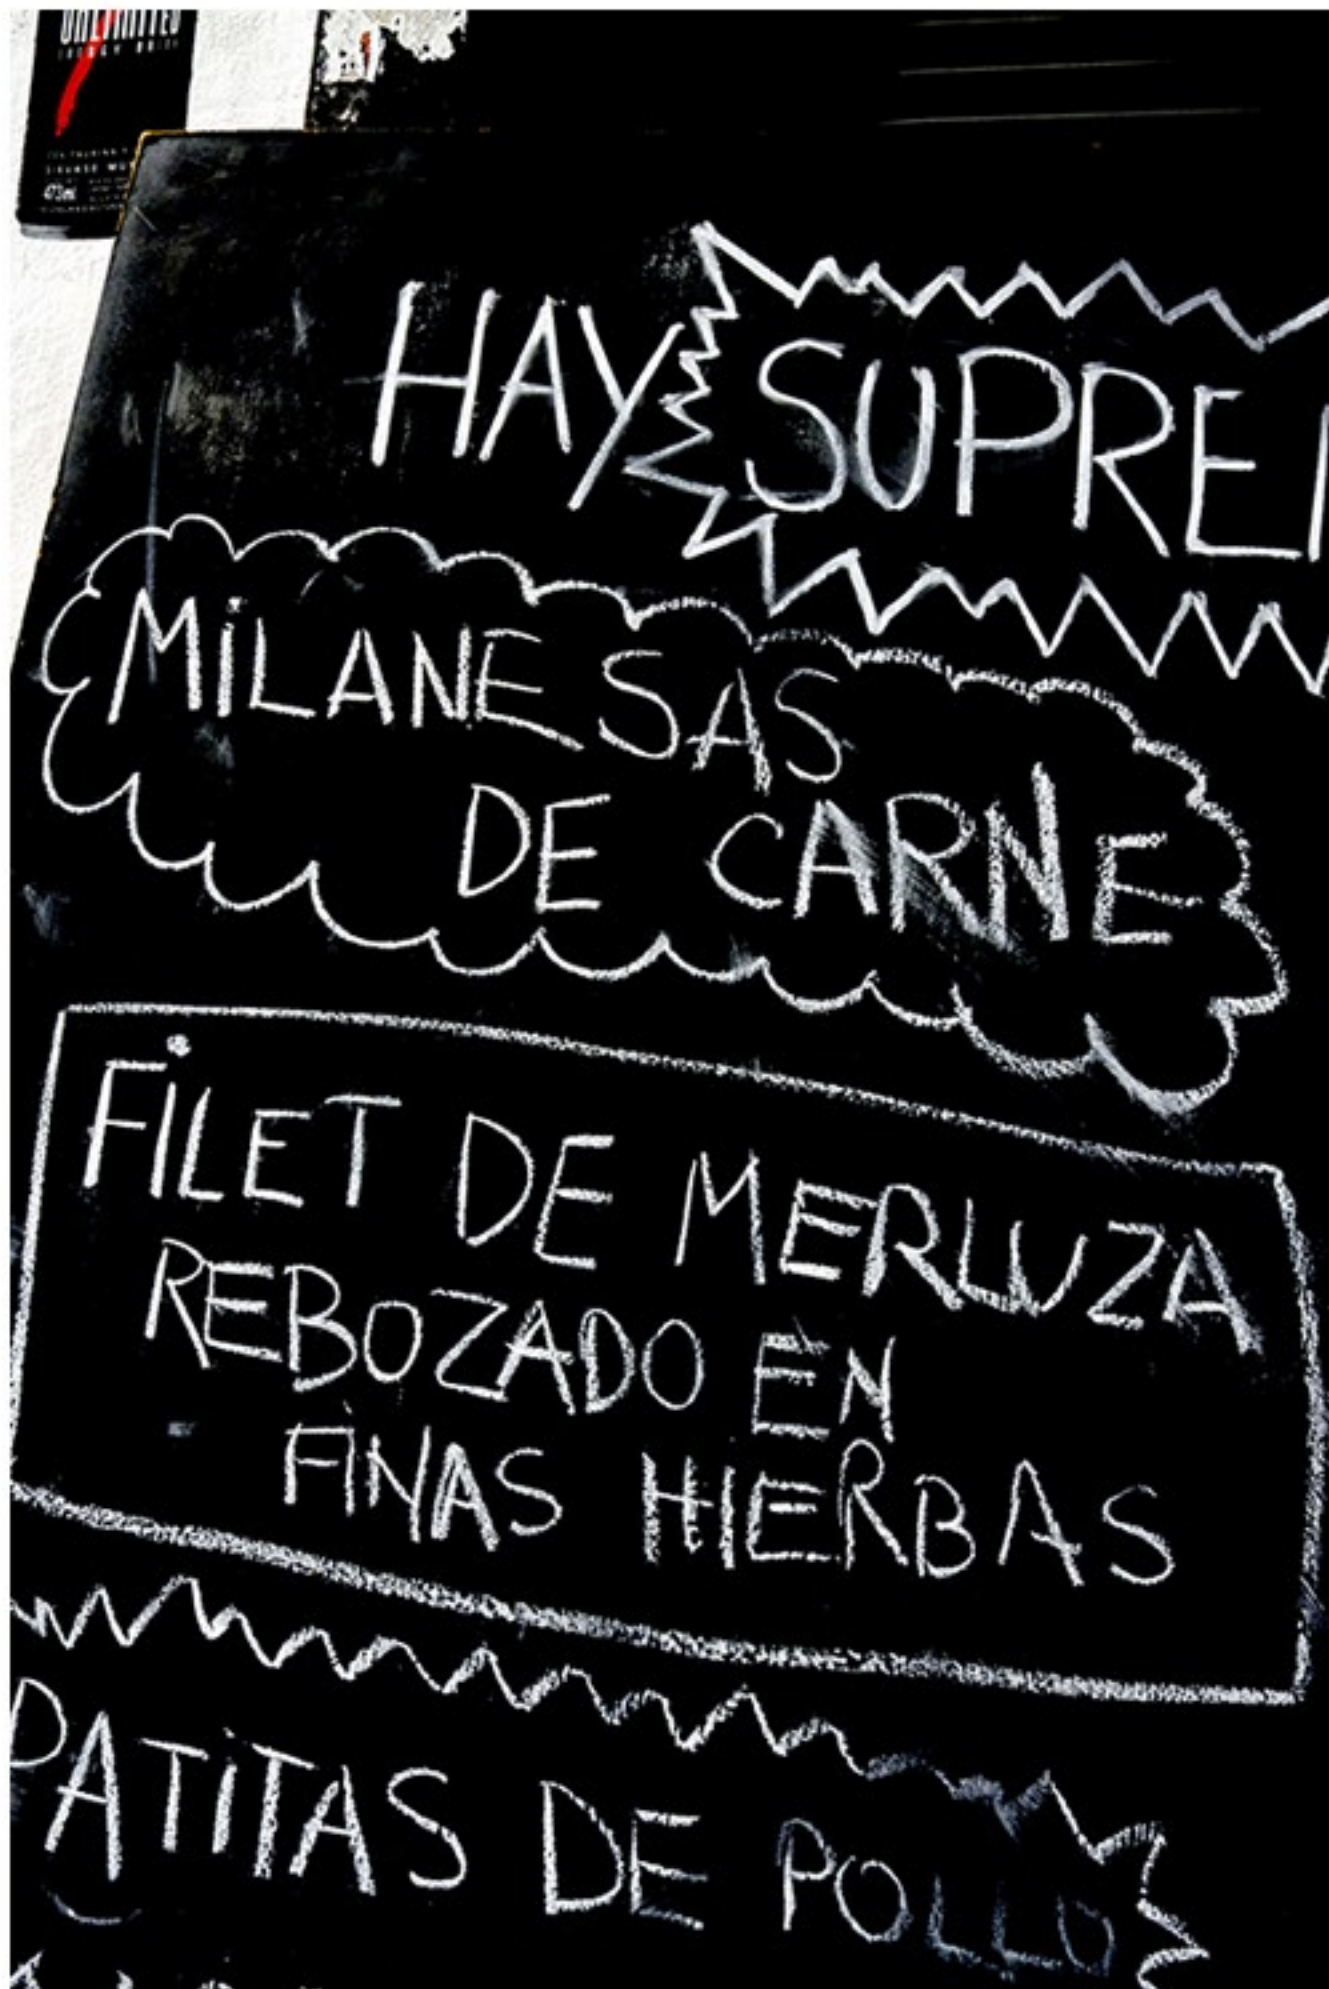 UNLIMITED
473ml
HAY SUPRE
MILANESAS
DE CARNE
FILET DE MERLUZA
REBOZADO EN
FINAS HIERBAS
PATITAS DE POLLO